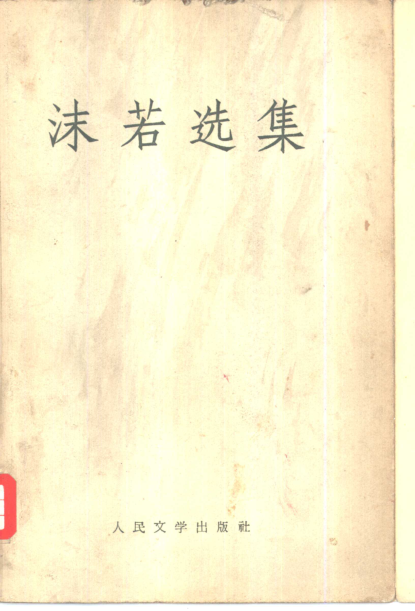 沫若选集
人民文学出版社